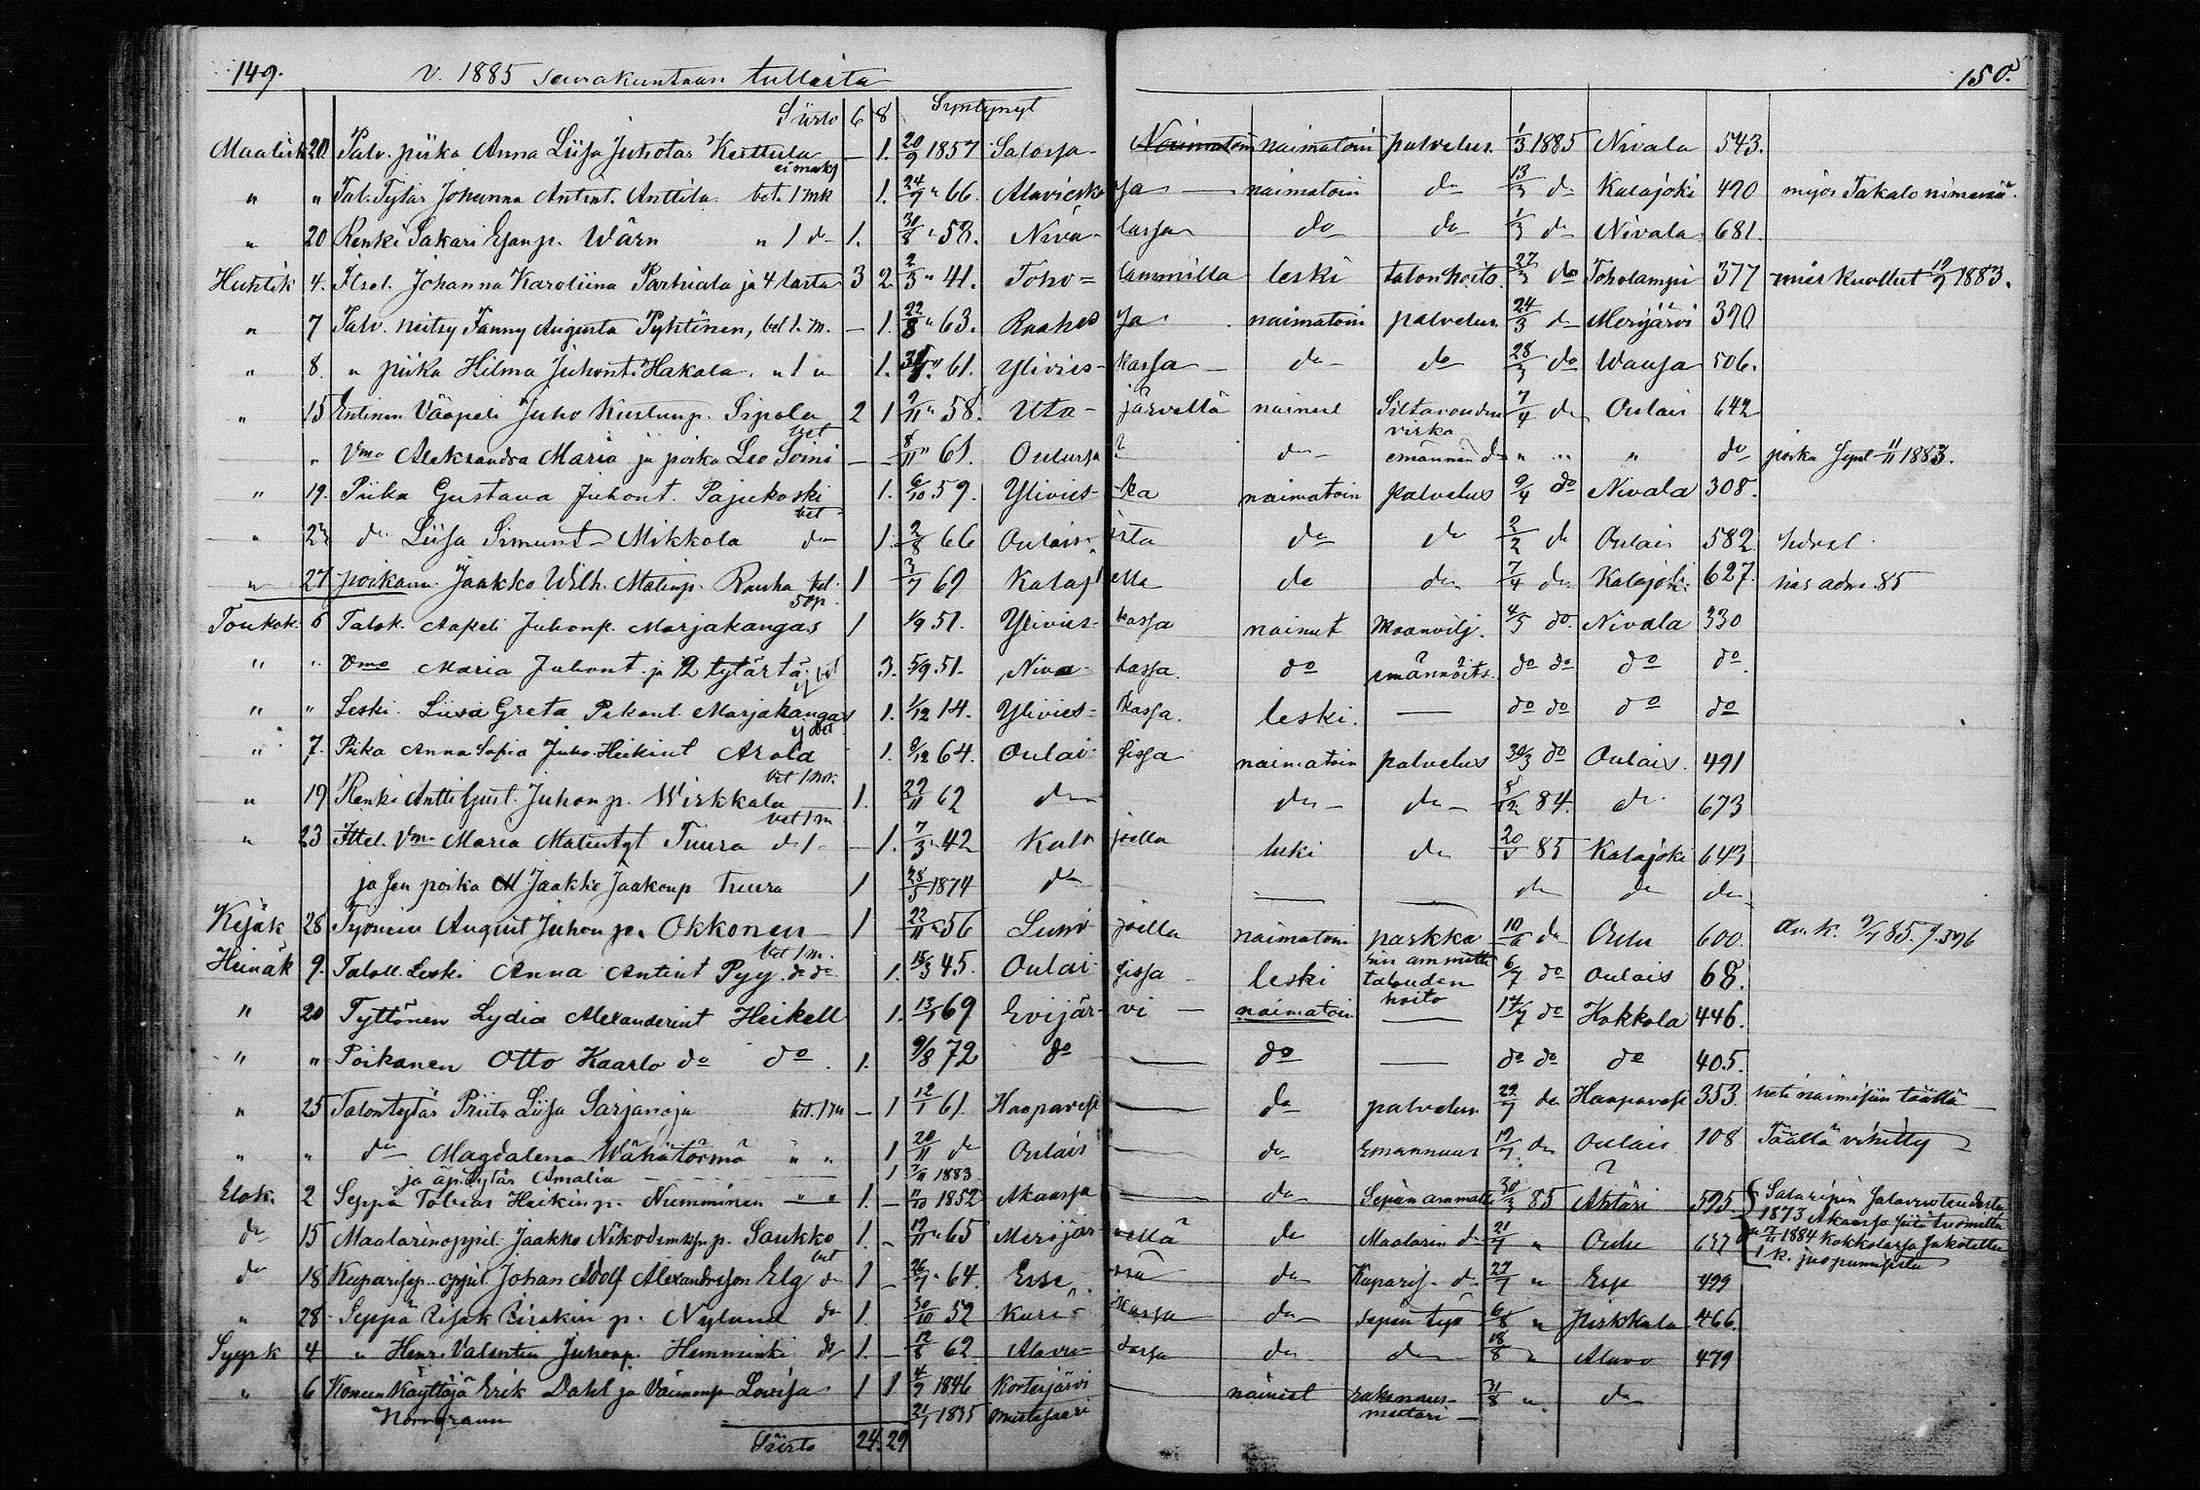 149. v. 1885 seurakuntaan tulleita 150.
Siirto 6 8 Syntynyt
Maalisk 20 Palv. piika Anna Liisa Juhotar Kerttula — 1. 20/9 1857 Salossa - naimatoin palvelus 1/3 1885 Nivala 543.
ei maks
" " Tal. Tytär Johanna Antint. Anttila bet. 1 mk 1. 24/7 " 66. Alavieska ssa — naimatoin do 13/3 do Kalajoki 490 myös Takalo nimenä.
" 20 Renki Sakari Esanp. Wärn " 1 do 1. 30/8 " 58. Niva- lassa do do 1/3 do Nivala 681.
Huhtik 4. Itsel. Johanna Karoliina Parhiala ja 4 lasta 3 2 2/3 " 41. Toho= lammilla leski talonhoito. 27/3 do Toholampi 377 mies kuollut 19/9 1883.
" 7 Palv. neitsy Fanny Augusta Pyhtinen, bet 1. m. — 1. 22/8 " 63. Raahes sa naimatoin palvelus 24/3 do Merijärvi 390
" 8. " piika Hilma Juhont. Hakala " 1 " 1. " 61. Ylivies- kassa — do do 28/3 do 506.
" 15 Entinen Vääpeli Juho Kustunp. Sipola 2 1 9/11 " 58. Uta- järvellä nainut Siltavoudin 7/4 do Oulais 642
bet virka
" Vmo Aleksandra Maria ja poika Leo Toini — - 8/11 " 61. Oulussa do emännän do " " " do poika synt 11/11 1883.
" 19. Piika Gustava Juhont. Pajukoski 1. 6/10 59. Ylivies- ka naimatoin palvelus 9/4 do Nivala 308.
bet
" 23 do Liisa Simunt Mikkola do 1. 2/8 66 Oulais- ista do do 2/2 do Oulais 582
" 27 poikanen Jaakko Wilh. Matinp. Rauha bet. 1 3/7 69 Kalaj ella do do 7/4 do Kalajoki 627.
50 p.
Toukok. 6 Talok. Aapeli Juhonp. Marjakangas 1 1/9 51. Ylivies- kassa nainut maanvilj. 4/5 do Nivala 330
" " Vmo Maria Juhont. ja 2 tytärtä 3. 5/9 51. Niva- lassa. do emännöits. do do do do
" " Leski Liisa Greta Pekant. Marjakangas 1. 1/12 14. Ylivies- kassa. leski. — do do do do
" 7. Piika Anna Sofia Juho Heikint Arola 1. 9/12 64. Oulai- sissa naimatoin palvelus 30/3 do Oulais. 491
bet 1 m.
" 19 Renki Antti Gust. Juhonp. Wirkkala 1. 22/11 62 do do - do - 8/12 84. do 673
bet 1 m
" 23 Ittel. Vmo Maria Matintyt Tuura do 1 — 1. 7/3 42 Kala joella leski do 20/5 85 Kalajoki 643
ja sen poika Jaakko Jaakonp Tuura 1 28/5 1874 do — — do do do
Kesäk 28 Työmies August Juhonp. Okkonen 1 22/11 56 Lumi- joella naimatoin parkka 10/6 do Oulu 600.
bet 1 m. rin ammatti
Heinäk 9. Taloll. Leski Anna Antint Pyy. do do 1. 15/3 45. Oulai- sissa - leski talouden 6/7 do Oulais 68.
hoito
" 20 Tyttönen Lydia Alexanderint Heikell 1. 13/1 69 Evijär- vi — naimatoin — 14/7 do Kokkola 446.
" " Poikanen Otto Kaarlo do do 1. 9/8 72 do — do — do do do 405.
" 25 Talontytär Priita Liisa Sarjanoja bet. 1 m — 1 12/1 61. Haapavesi — do palvelus 22/7 do Haapavesi 353. heti naimisiin täällä
" " do Magdalena Wähätörmä " " 1 20/11 do Oulais — do Emännyys 19/7. do Oulais 108 Täällä vihitty
ja äp. tytär Amalia 1 1883
Elok. 2 Seppä Tobias Heikinp. Numminen — " 1. — 1852 Akaassa — do Sepän ammatti 30/3 85 Ähtäri 595 Salavuoteudesta
1873 Akaassa
do 15 Maalarinoppil. Jaakko Nikodemksen p. Saukko 1. - 19/11 " 65 Merijär- vellä do Maalarin do 21/7 " Oulu 637 1884 Kokkolassa sakotettu
bet 1 k. juopumisesta
do 18 Kuparisep. oppil. Johan Adolf Alexandersson Elg do 1 - 26/7 " 64. Esse ssä do Kuparis. do 27/7 " Esse 499
" 28 Seppä Iisak Iisakin p. Nylund do 1. 30/10 52 Kuri- kassa do Sepän työ 6/8 " Pirkkala 466.
Syysk 4 " Henr. Valentin Juhonp. Hemminki do 1. — 12/8 62 Alavu= dessa do do 18/8 " Alavo 479
" 6 Koneen Käyttäjä Erik Dahl ja Vaimonsa Lovisa 1 1 4/9 1846 Kortesjärvi — nainut rakennus- 31/8 " do
Norrgrann 21/1 1835 Mustasaari mestari —
Siirto 24. 29